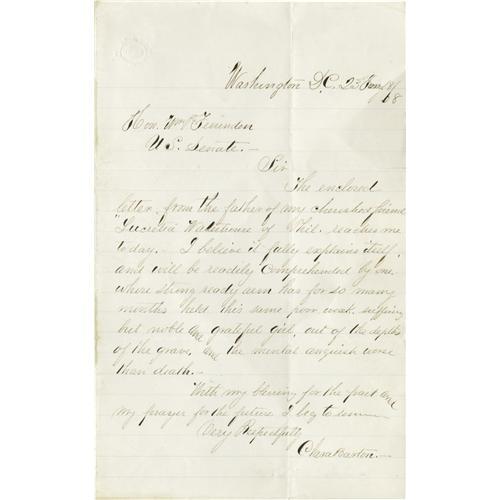 Washington D.C. 23 Jany /68
Hon. Wm P Fessenden
U.S. Senate. —
Sir
The enclosed
letter, from the father of my cherished friend
Lucretia Waterhouse of Phil. reaches me
today. — I believe it fully explains itself,
and will be readily comprehended by one
whose strong ready arm has for so many
months held this same poor weak, suffering
but noble and grateful girl, out of the depths
of the grave, and the mental anguish worse
than death. —
With my blessing for the past and
my prayer for the future I beg to
Very Respectfully
Clara Barton. —